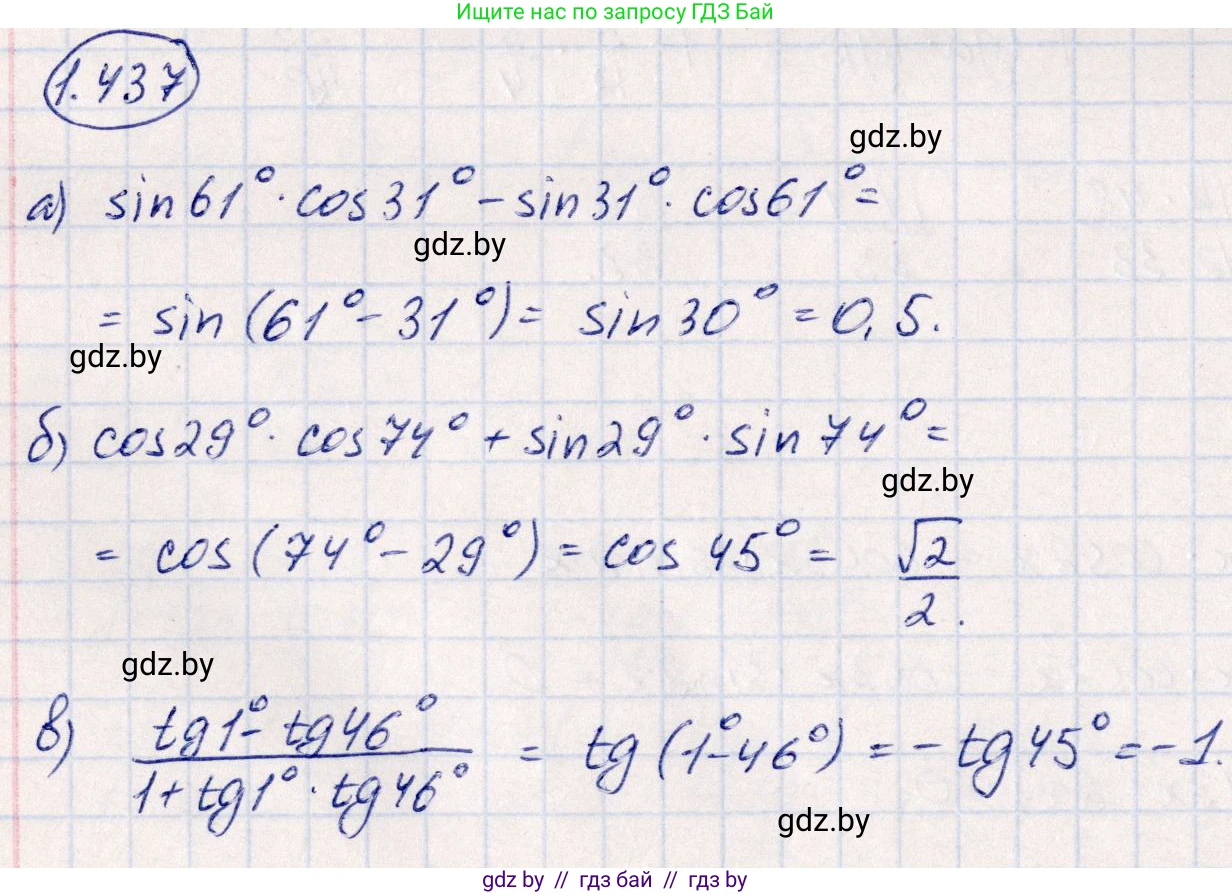 Ищите нас по запросу ГДЗ Бай
1.437
gdz.by
а) sin61°·cos31° - sin31°·cos61° =
gdz.by
= sin(61° - 31°) = sin30° = 0,5.
gdz.by
б) cos29°·cos74° + sin29°·sin74° =
gdz.by
= cos(74° - 29°) = cos45° = √2/2.
gdz.by
в) (tg1° - tg46°)/(1 + tg1°·tg46°) = tg(1° - 46°) = -tg45° = -1.
gdz.by
gdz.by // гдз бай // gdz.by